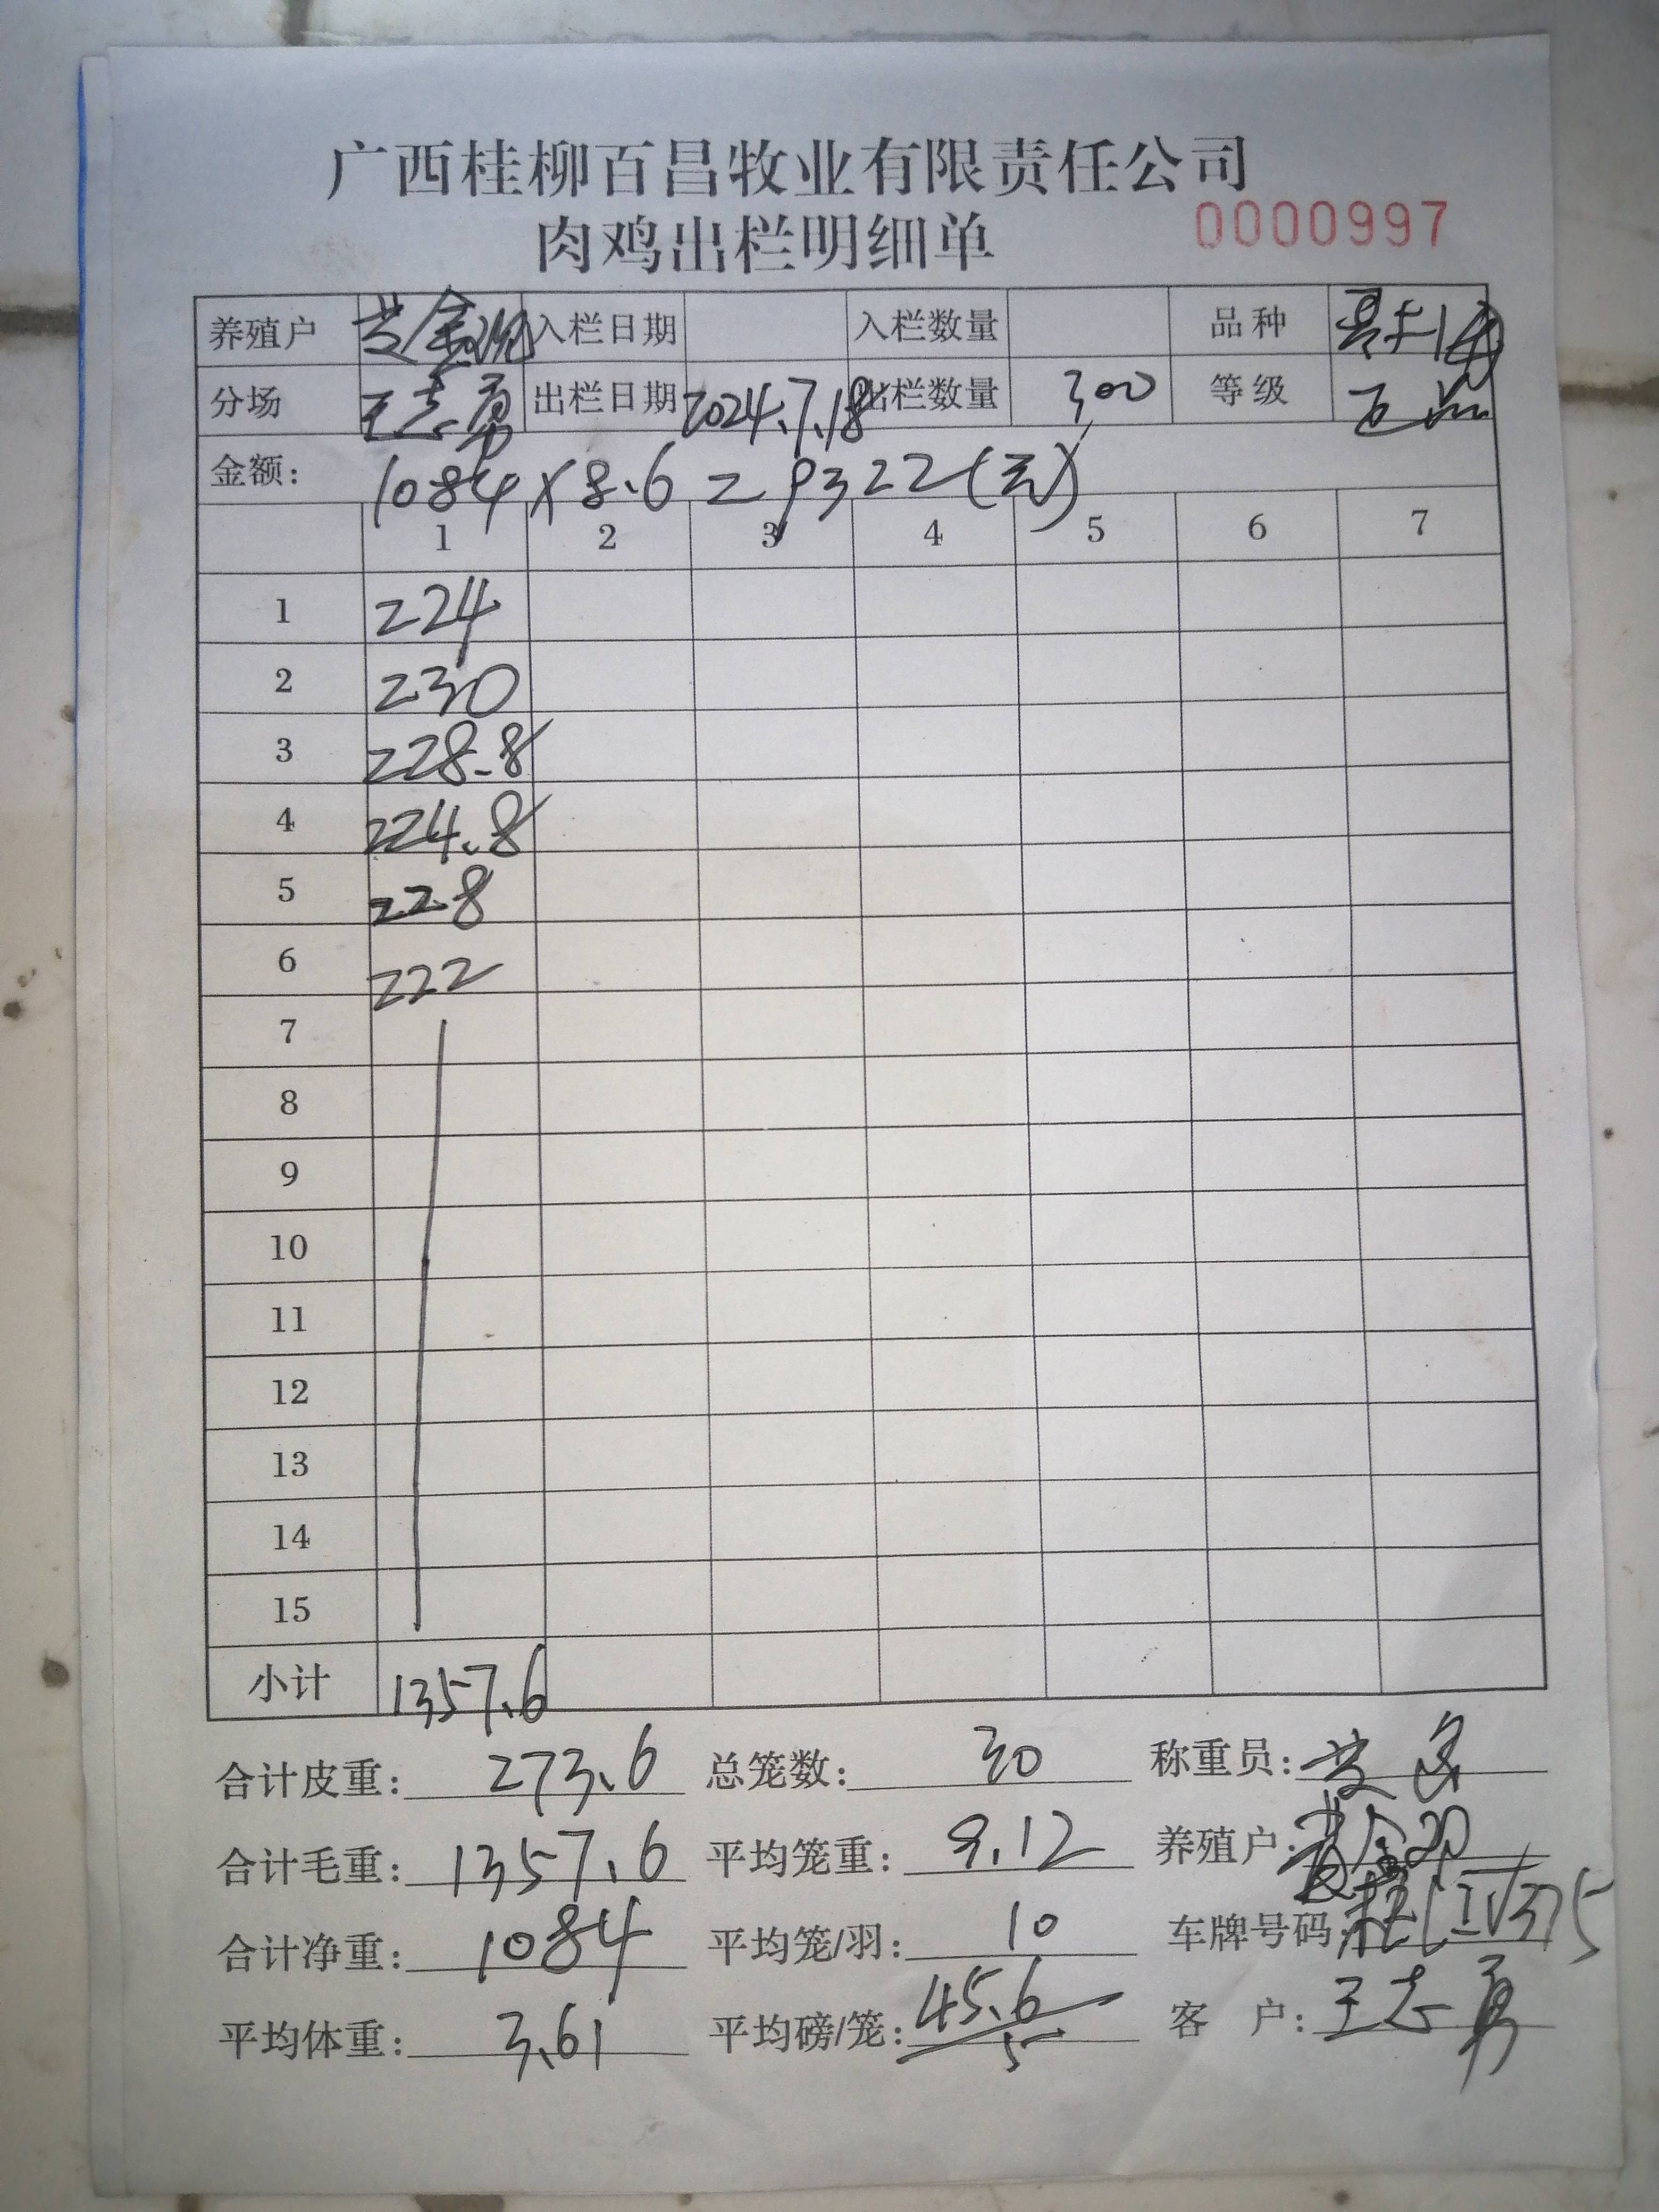 广西桂柳百昌牧业有限责任公司
肉鸡出栏明细单 0000997
养殖户 黄金 入栏日期 入栏数量 品种
分场 王志勇 出栏日期 2024.7.18 出栏数量 300 等级
金额: 1084×8.6=9322(元)
1 2 3 4 5 6 7
1 224
2 230
3 228.8
4 224.8
5 228
6 222
7
8
9
10
11
12
13
14
15
小计 1357.6
合计皮重: 273.6 总笼数: 30 称重员:
合计毛重: 1357.6 平均笼重: 9.12 养殖户:
合计净重: 1084 平均笼/羽: 10 车牌号码:
平均体重: 3.61 平均磅/笼: 45.6/5 客 户: 王志勇